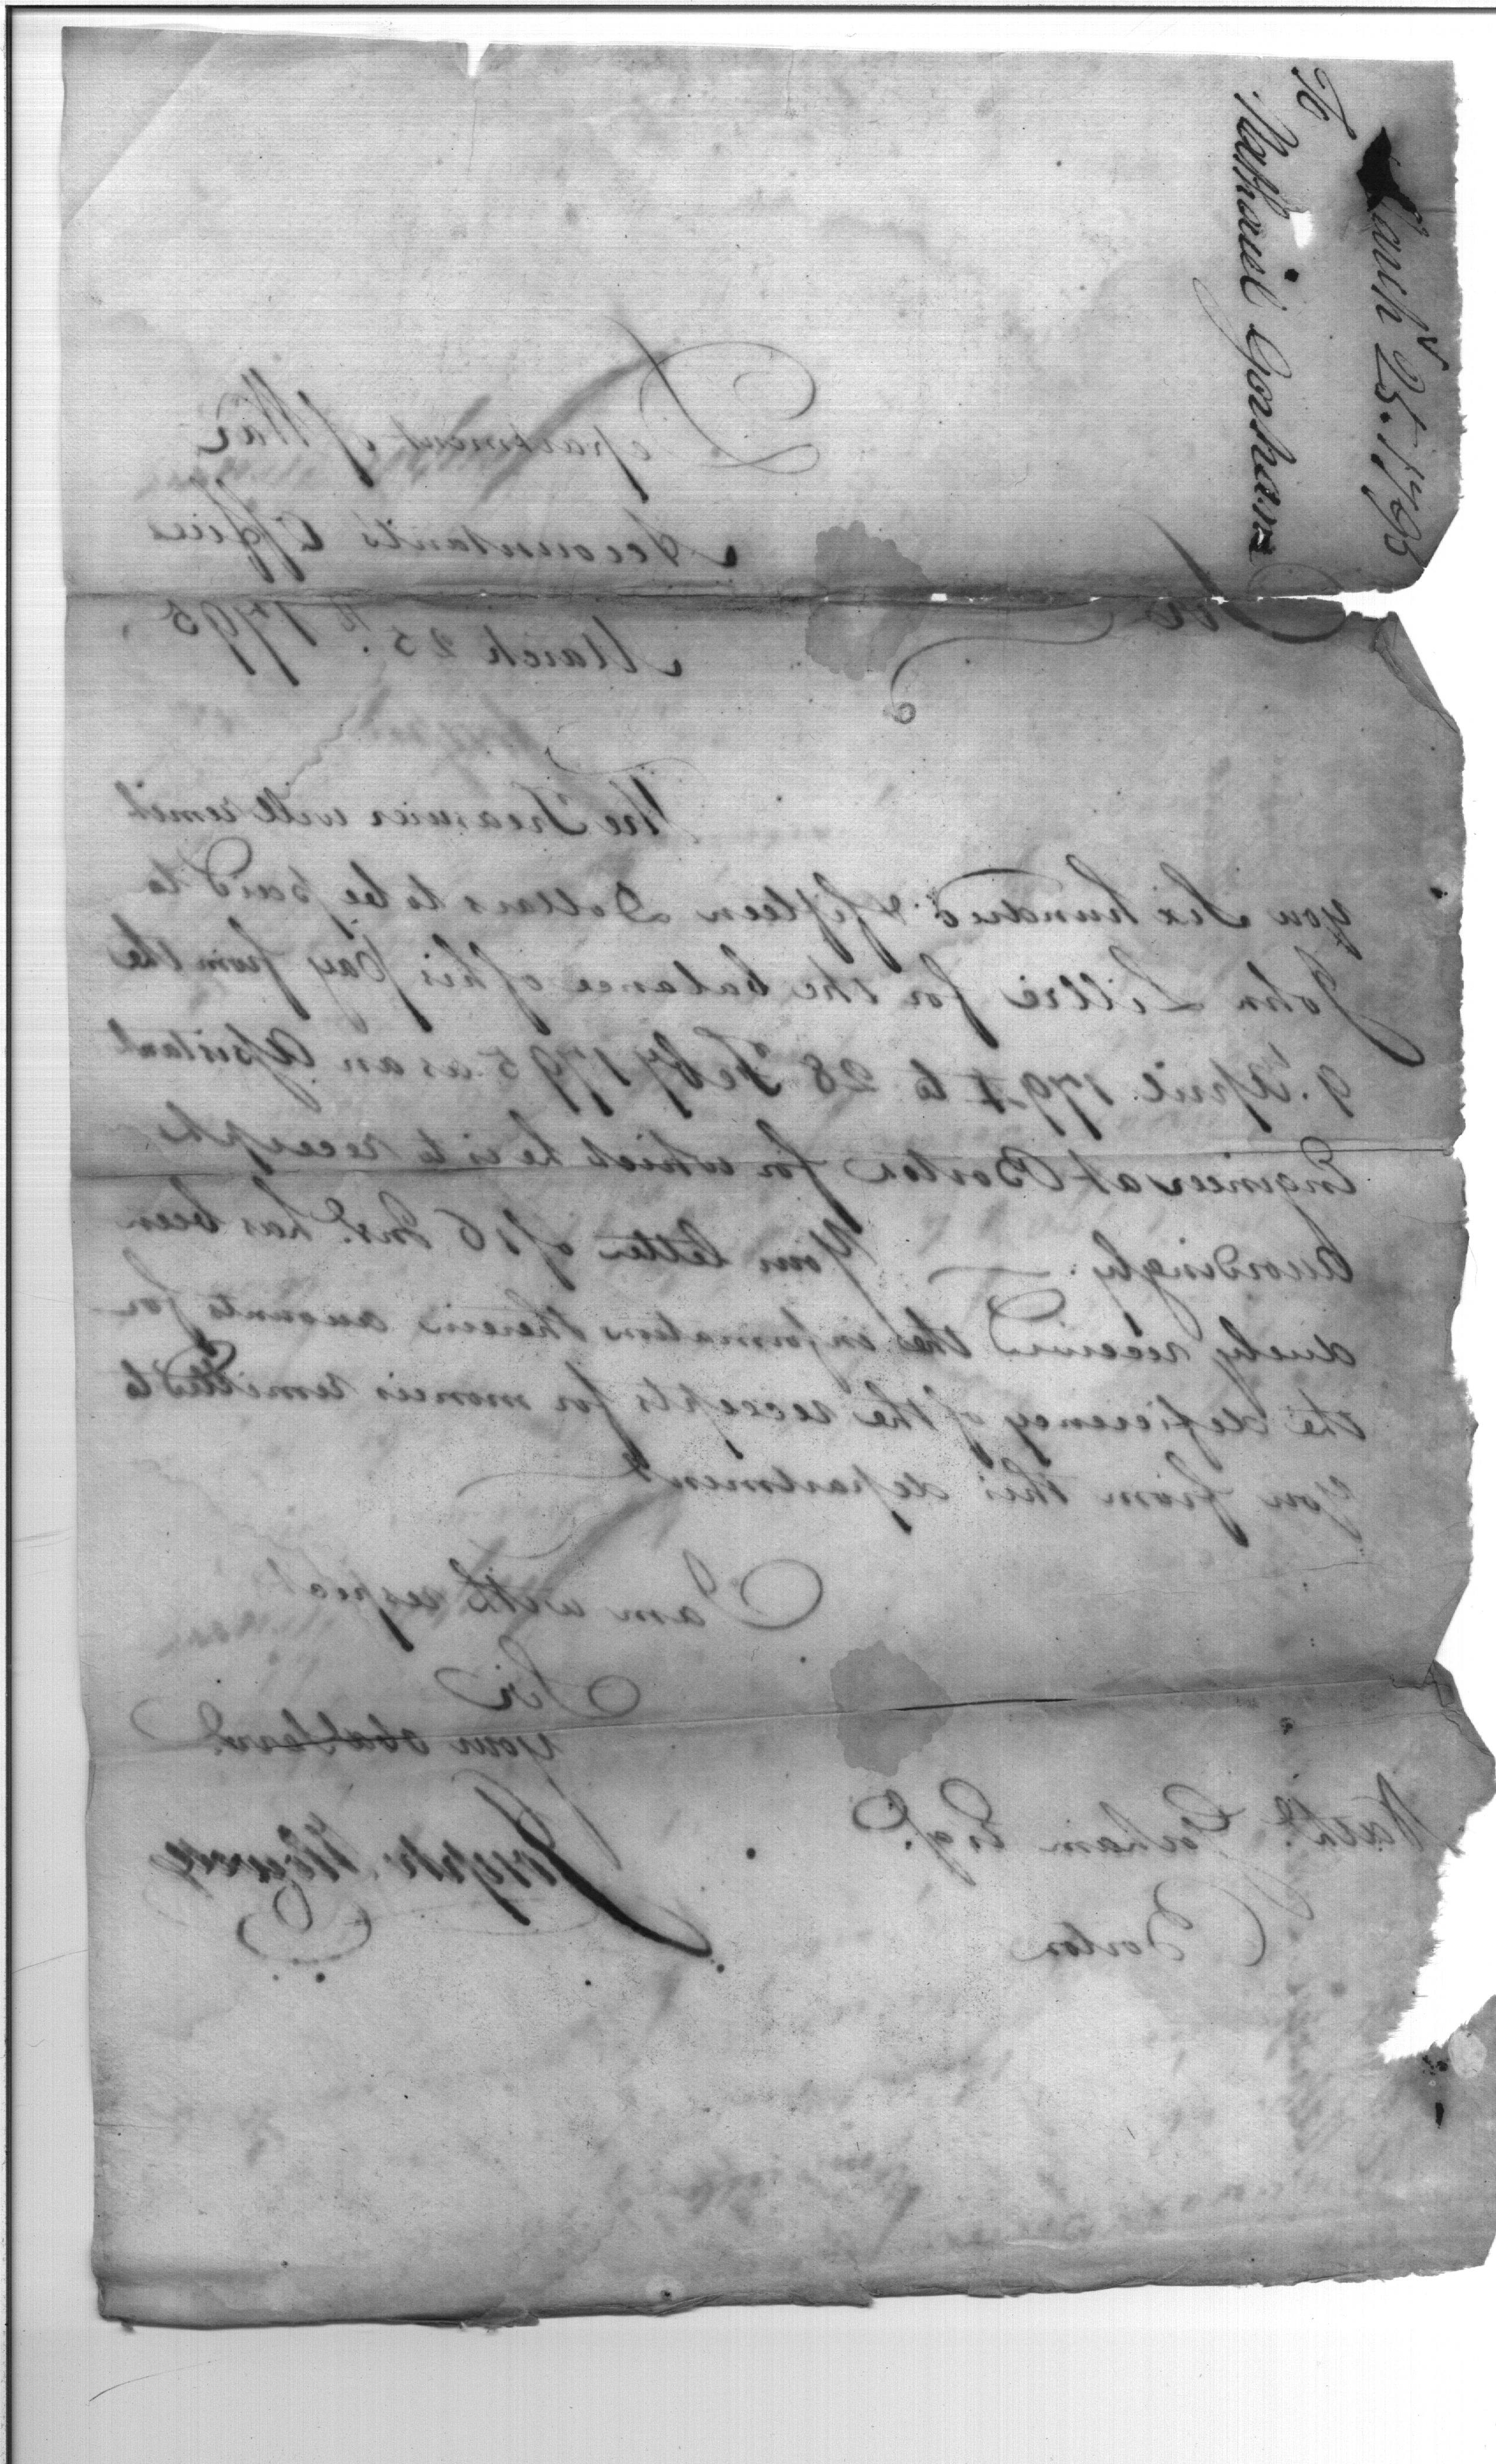 March 25. 1795
To
Nathaniel Gorham
Department of War
Accountant's Office
March 25th 1795
Sir
The Treasurer will remit
you Six hundred & fifteen Dollars to be paid to
John Lillie for the balance of his pay from the
9. April 1794 to 28 Feby 1795 as an Assistant
Engineer at Boston for which he is to receipt
accordingly. Your letter of 16 Inst. has been
duely received the information therein accounts for
the deficiency of the receipts for monies remitted to
you from this department
I am with respect
Sir
your obd Servt.
Joseph Howell
Nathl. Gorham Esqr.
Boston